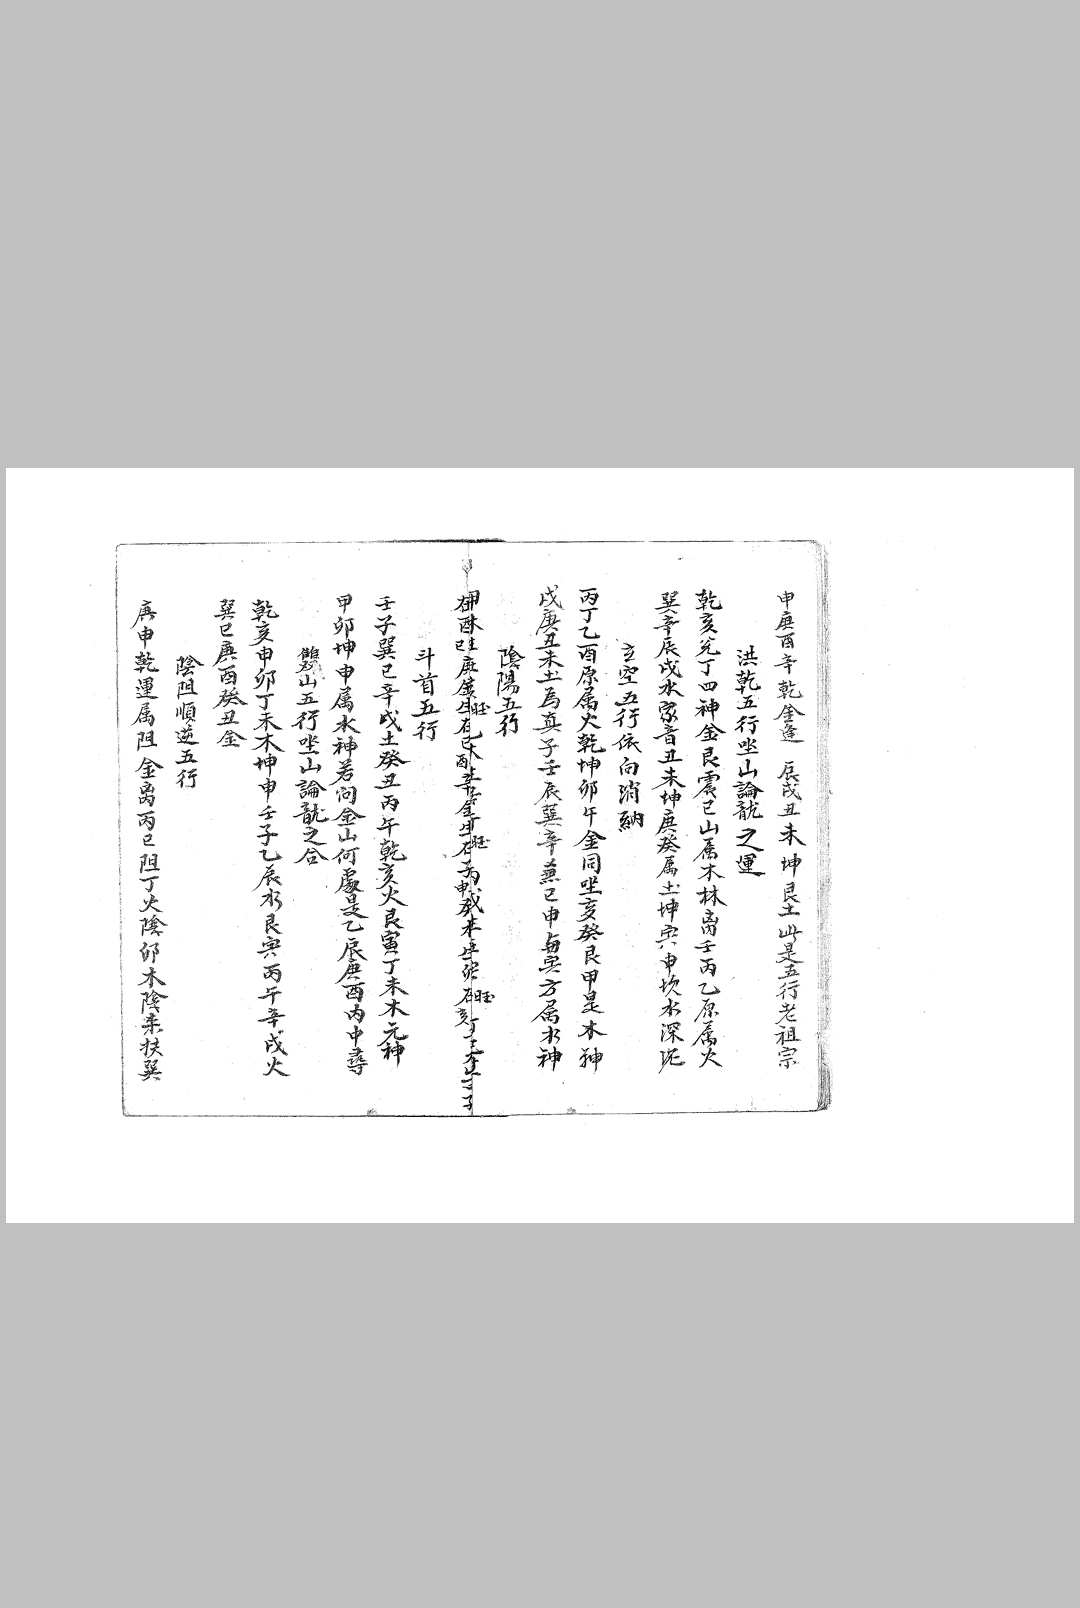 申庚酉辛乾金逢 辰戌丑未坤艮土此是五行老祖宗
洪乾五行坐山論龍之運
乾亥兌丁四神金艮震巳山属木林离壬丙乙原属火
巽辛辰戌水家音丑未坤庚癸属土坤寅申坎水深泥
玄空五行依向消納
丙丁乙酉原属火乾坤卯午金同坐亥癸艮甲是木神
戌庚丑未土為真子壬辰巽辛兼巳申與寅方属水神
陰陽五行
斗首五行
壬子巽巳辛戌土癸丑丙午乾亥火艮寅丁未木元神
甲卯坤申属水神若问金山何處是乙辰庚酉内中尋
雙山五行坐山論龍之合
乾亥甲卯丁未木坤申壬子乙辰水艮寅丙午辛戌火
巽巳庚酉癸丑金
陰阻順逆五行
庚申乾運属阻金离丙巳阻丁火陰卯木陰柔扶巽